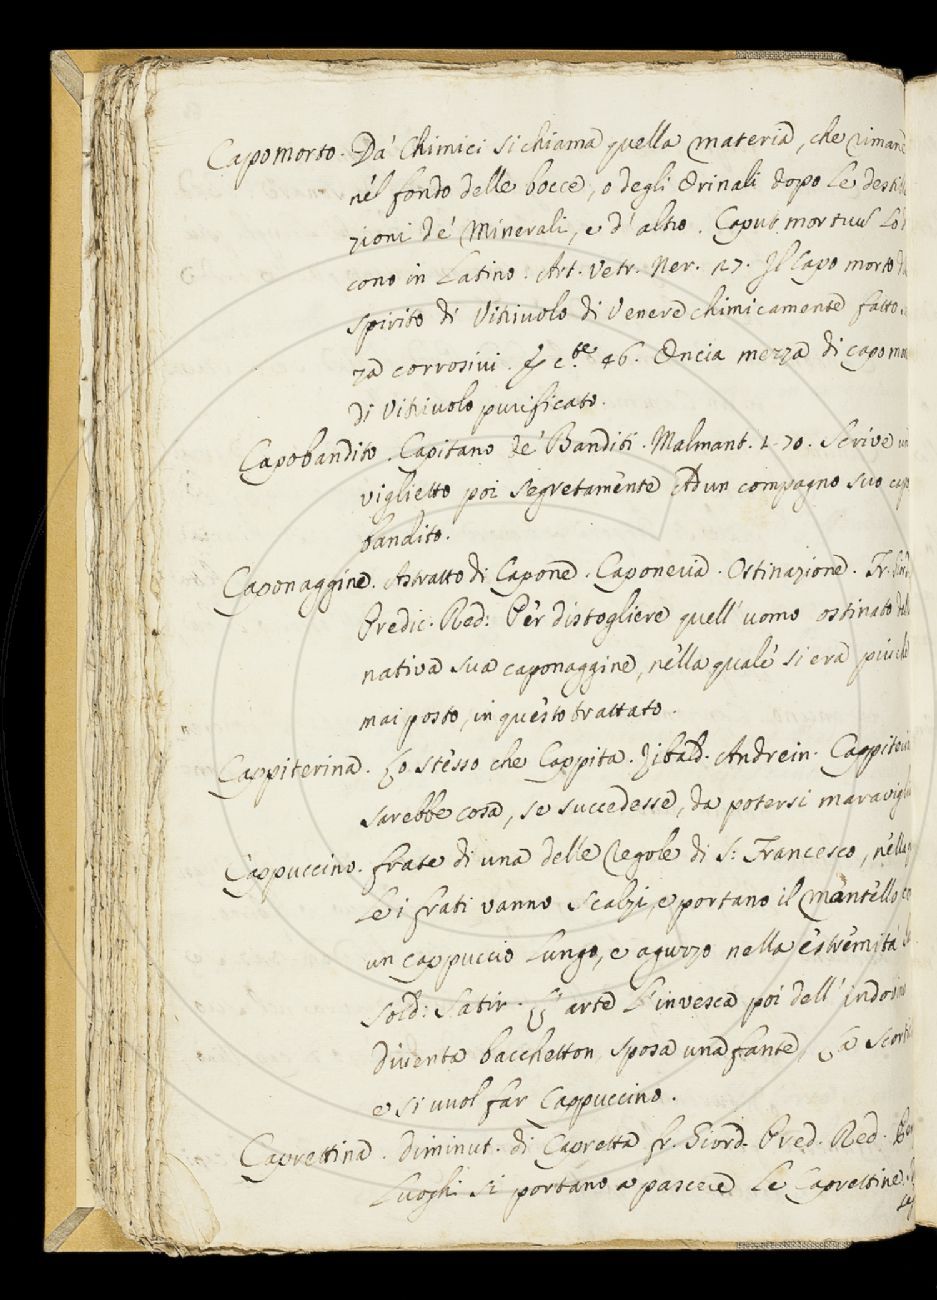 Capomorto. Da' Chimici si chiama quella materia, che riman
nel fondo delle bocce, o degli Orinali dopo le desti
zioni de' Minerali, e d' altro. Caput mortuu
cono in Latino. Art. Vetr. Ner. 27. Il Capo morto
spirito di Vitriuolo di Venere chimicamente fatto
za corrosivi. E c.te 46. Oncia mezza di capo mo
di Vitriuolo purificato.
Capobandito. Capitano de' Banditi. Malmant. 2. 70. Scrive un
viglietto poi segretamente Ad un compagno suo capo
bandito.
Caponaggine. Astratto di Capone. Caponeria. Ostinazione. Fr.
Predic. Red: Per distogliere quell' uomo ostinato
nativa sua caponaggine, nella quale si era più che
mai posto, in questo trattato.
Cappiterina. Lo stesso che Cappita. Zibald. Andrein. Cappiterin
sarebbe cosa, se succedesse, da potersi maravigl
Cappuccino. frate di una delle Regole di S: Francesco, nella
le i frati vanno Scalzi, e portano il mantello
un cappuccio Lungo, e aguzzo nella estremità
Sold: Satir. L' arte l' invesca poi dell' indovin
diventa bacchetton, sposa una fante, La Scorti
e si vuol far Cappuccino.
Caprettina. Diminut. di Capretta fr. Giord. Pred. Red.
Luoghi si portano a pascere le Caprettine